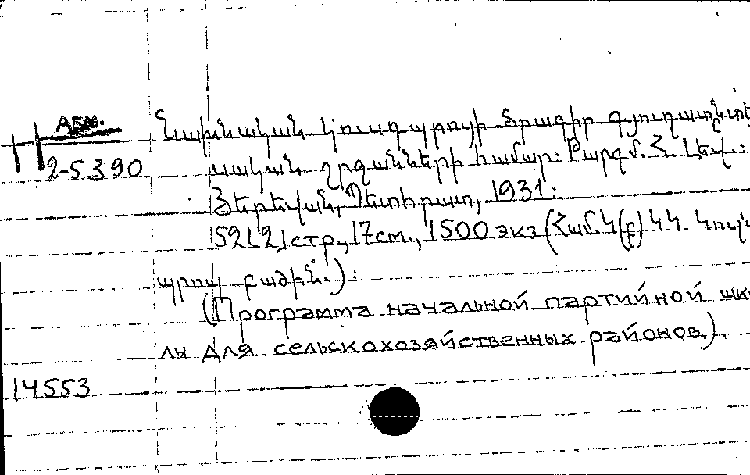 АБМ.
Նախնական կուսդպրոցի ծրագիր գյուղատնտե
2-5390
սական շրջանների համար: Թարգմ. Հ.
Յերեվան, Պետհրատ, 1931.
152[2] стр., 17см., 1500 экз (Համ.Կ(բ)ԿԿ. Կուլտ
պրոպ բաժին.):
(Программа начальной партийной шко
лы для сельскохозяйственных районов).
14553